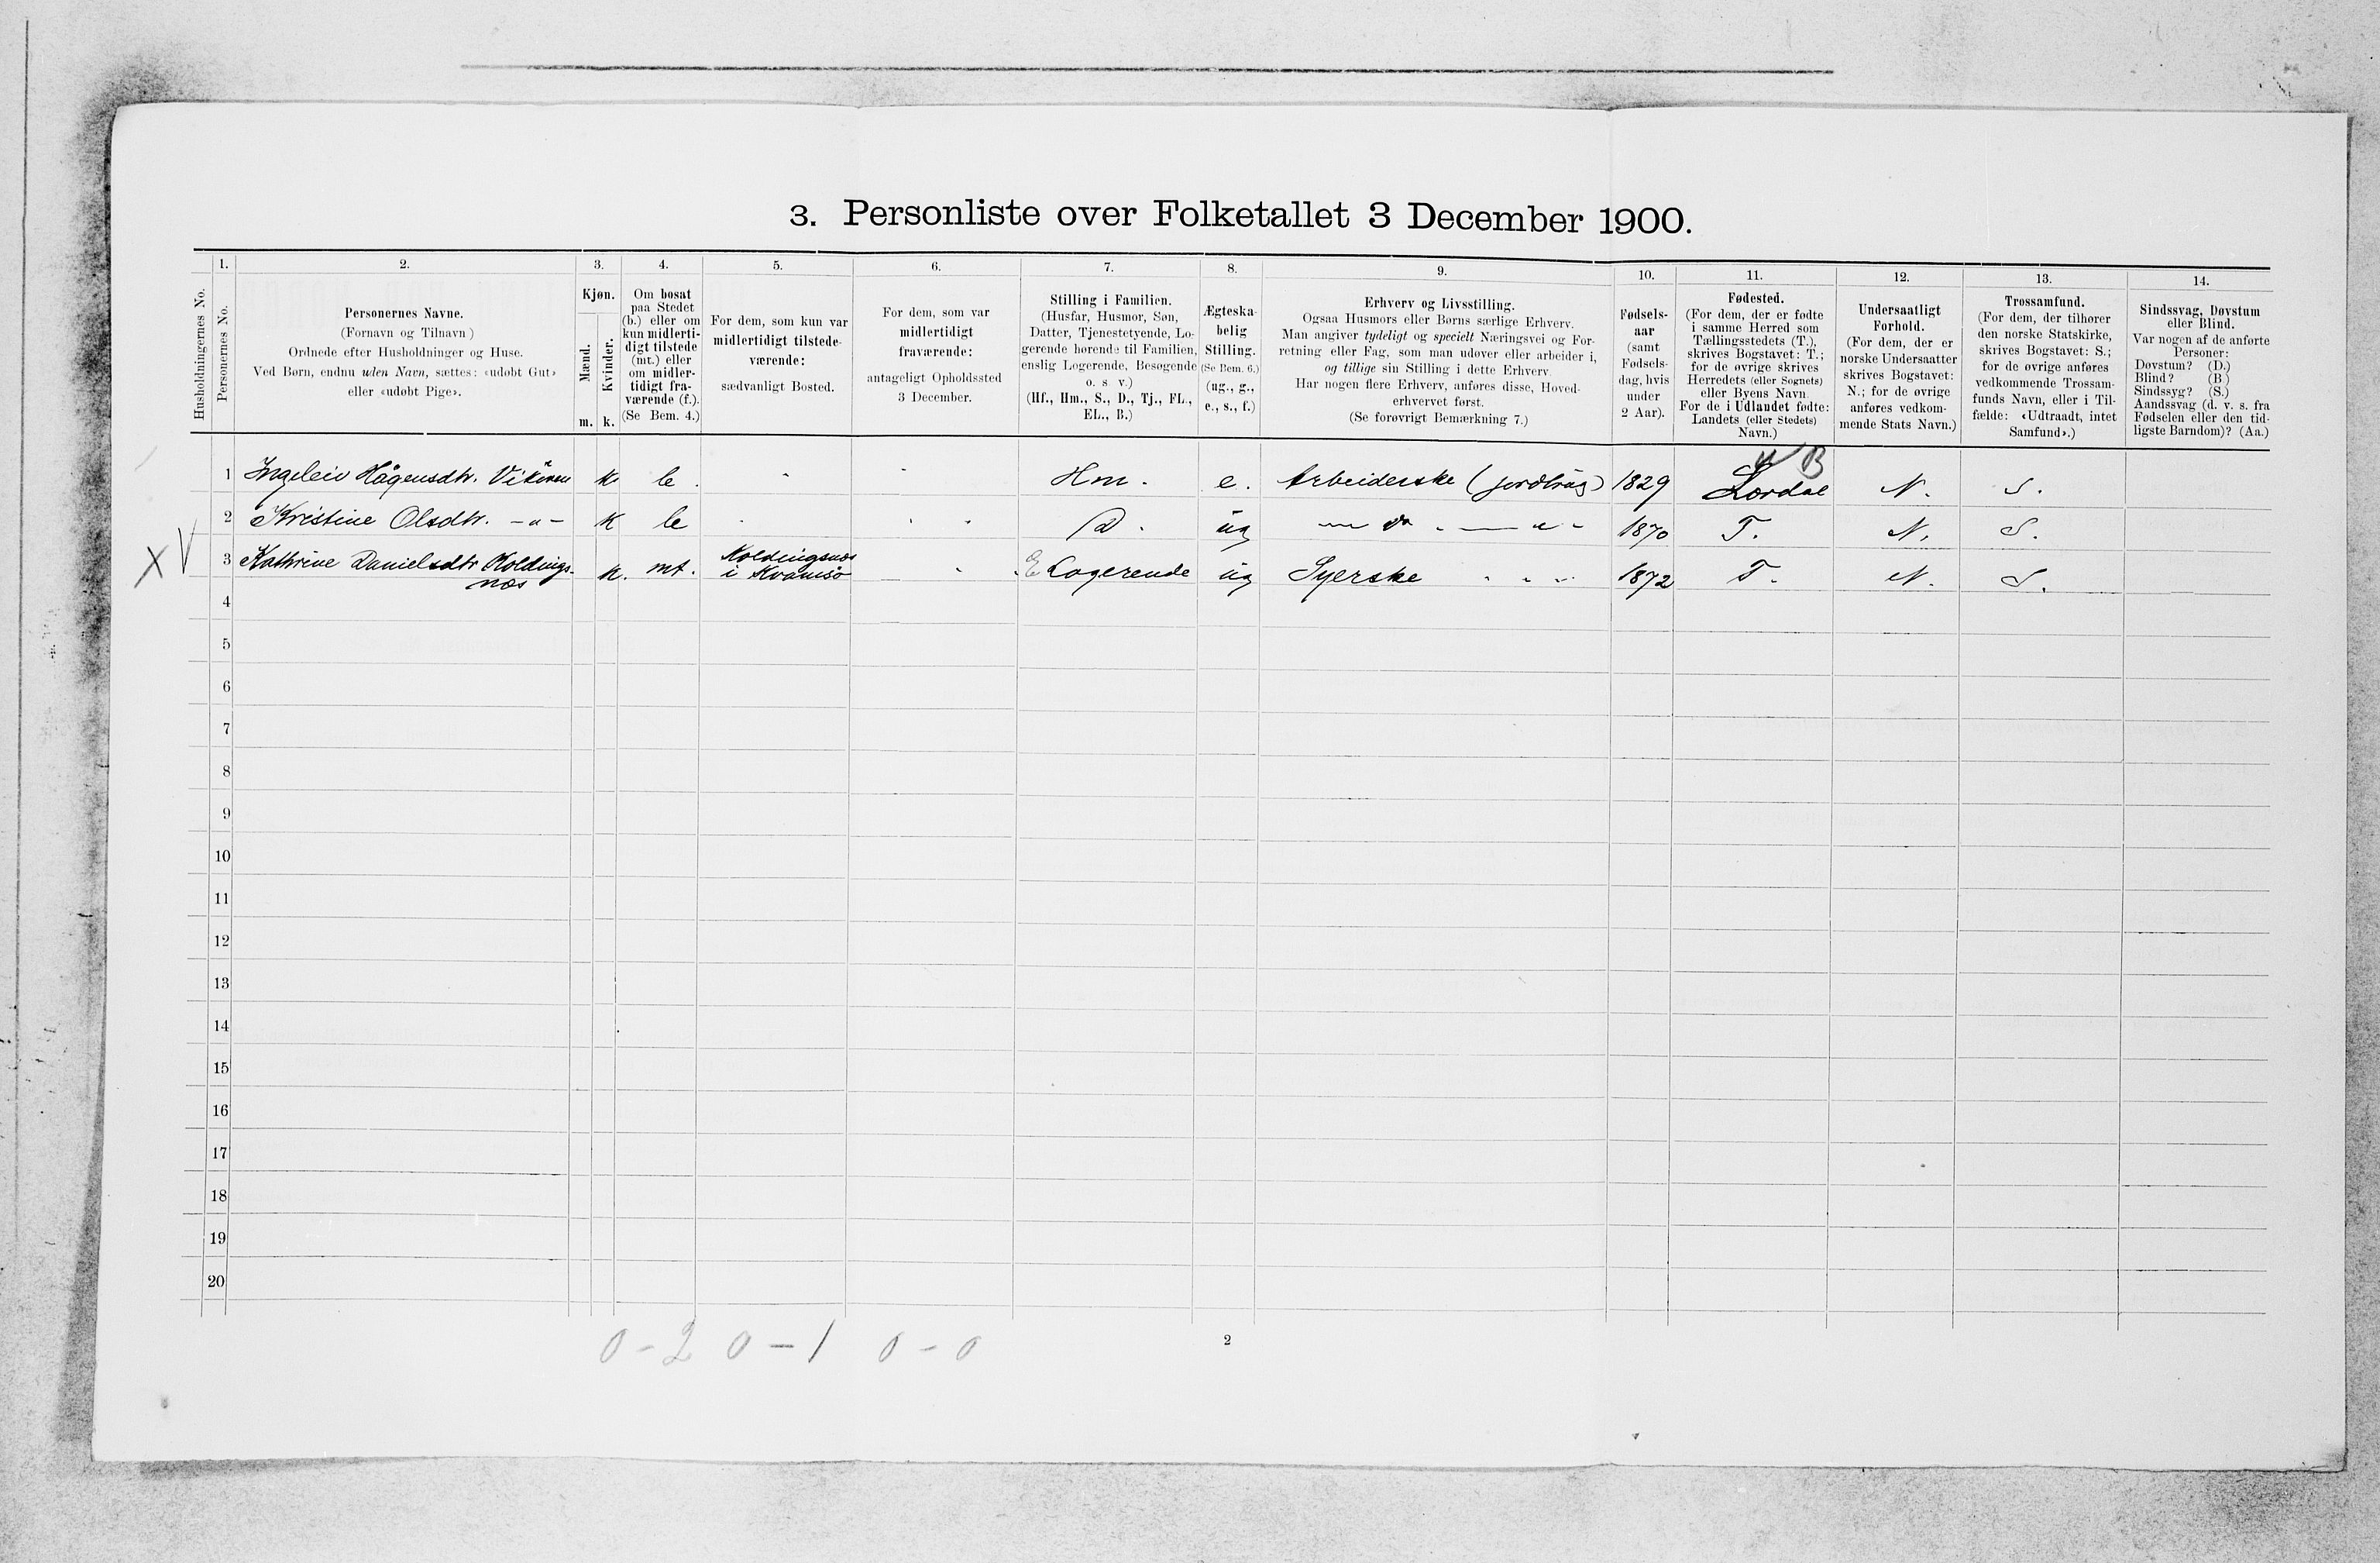 3. Personliste over Folketallet 3 December 1900.
1. 2. 3. 4. 5. 6. 7. 8. 9. 10. 11. 12. 13. 14.
Husholdningernes No.
Personernes No.
Personernes Navne.
(Fornavn og Tilnavn)
Ordnede efter Husholdninger og Huse.
Ved Børn, endnu uden Navn, sættes: «udøbt Gut»
eller «udøbt Pige».
Kjøn.
Mænd.
Kvinder.
m. k.
Om bosat
paa Stedet
(b.) eller om
kun midlerti-
digt tilstede
(mt.) eller
om midler-
tidigt fra-
værende (f.).
(Se Bem. 4.)
For dem, som kun var
midlertidigt tilstede-
værende:
sædvanligt Bosted.
For dem, som var
midlertidigt
fraværende:
antageligt Opholdssted
3 December.
Stilling i Familien.
(Husfar, Husmor, Søn,
Datter, Tjenestetyende, Lo-
gerende hørende til Familien,
enslig Logerende, Besøgende
o. s. v.)
(Hf., Hm., S., D., Tj., FL.,
EL., B.)
Ægteska-
belig
Stilling.
(Se Bem. 6.)
(ug., g.,
e., s., f.)
Erhverv og Livsstilling.
Ogsaa Husmors eller Børns særlige Erhverv.
Man angiver tydeligt og specielt Næringsvei og For-
retning eller Fag, som man udøver eller arbeider i,
og tillige sin Stilling i dette Erhverv.
Har nogen flere Erhverv, anføres disse, Hoved-
erhvervet først.
(Se forøvrigt Bemærkning 7.)
Fødsels-
aar
(samt
Fødsels-
dag, hvis
under
2 Aar).
Fødested.
(For dem, der er fødte
i samme Herred som
Tællingsstedets (T.),
skrives Bogstavet: T.;
for de øvrige skrives
Herredets (eller Sognets)
eller Byens Navn.
For de i Udlandet fødte:
Landets (eller Stedets)
Navn.)
Undersaatligt
Forhold.
(For dem, der er
norske Undersaatter
skrives Bogstavet:
N.; for de øvrige
anføres vedkom-
mende Stats Navn.)
Trossamfund.
(For dem, der tilhører
den norske Statskirke,
skrives Bogstavet: S.;
for de øvrige anføres
vedkommende Trossam-
funds Navn, eller i Til-
fælde: «Udtraadt, intet
Samfund».)
Sindssvag, Døvstum
eller Blind.
Var nogen af de anførte
Personer:
Døvstum? (D.)
Blind? (B.)
Sindssyg? (S.)
Aandssvag (d. v. s. fra
Fødselen eller den tid-
ligste Barndom)? (Aa.)
B
1 Ingeleiv Hågensdtr. Vikören k. b. Hm. e. Arbeiderske (jordbrug) 1829 Lærdal N. S.
2 Kristine Olsdtr. -"- k b D. ug 1870 T. N. S.
3 Kathrine Danielsdtr Koldings-
næs k. mt. Koldingsnæs
i Kvamsö E Logerende ug Syerske 1872 T. N. S.
X V
4
5
6
7
8
9
10
11
12
13
14
15
16
17
18
19
20
0-2 0-1 0-0
2